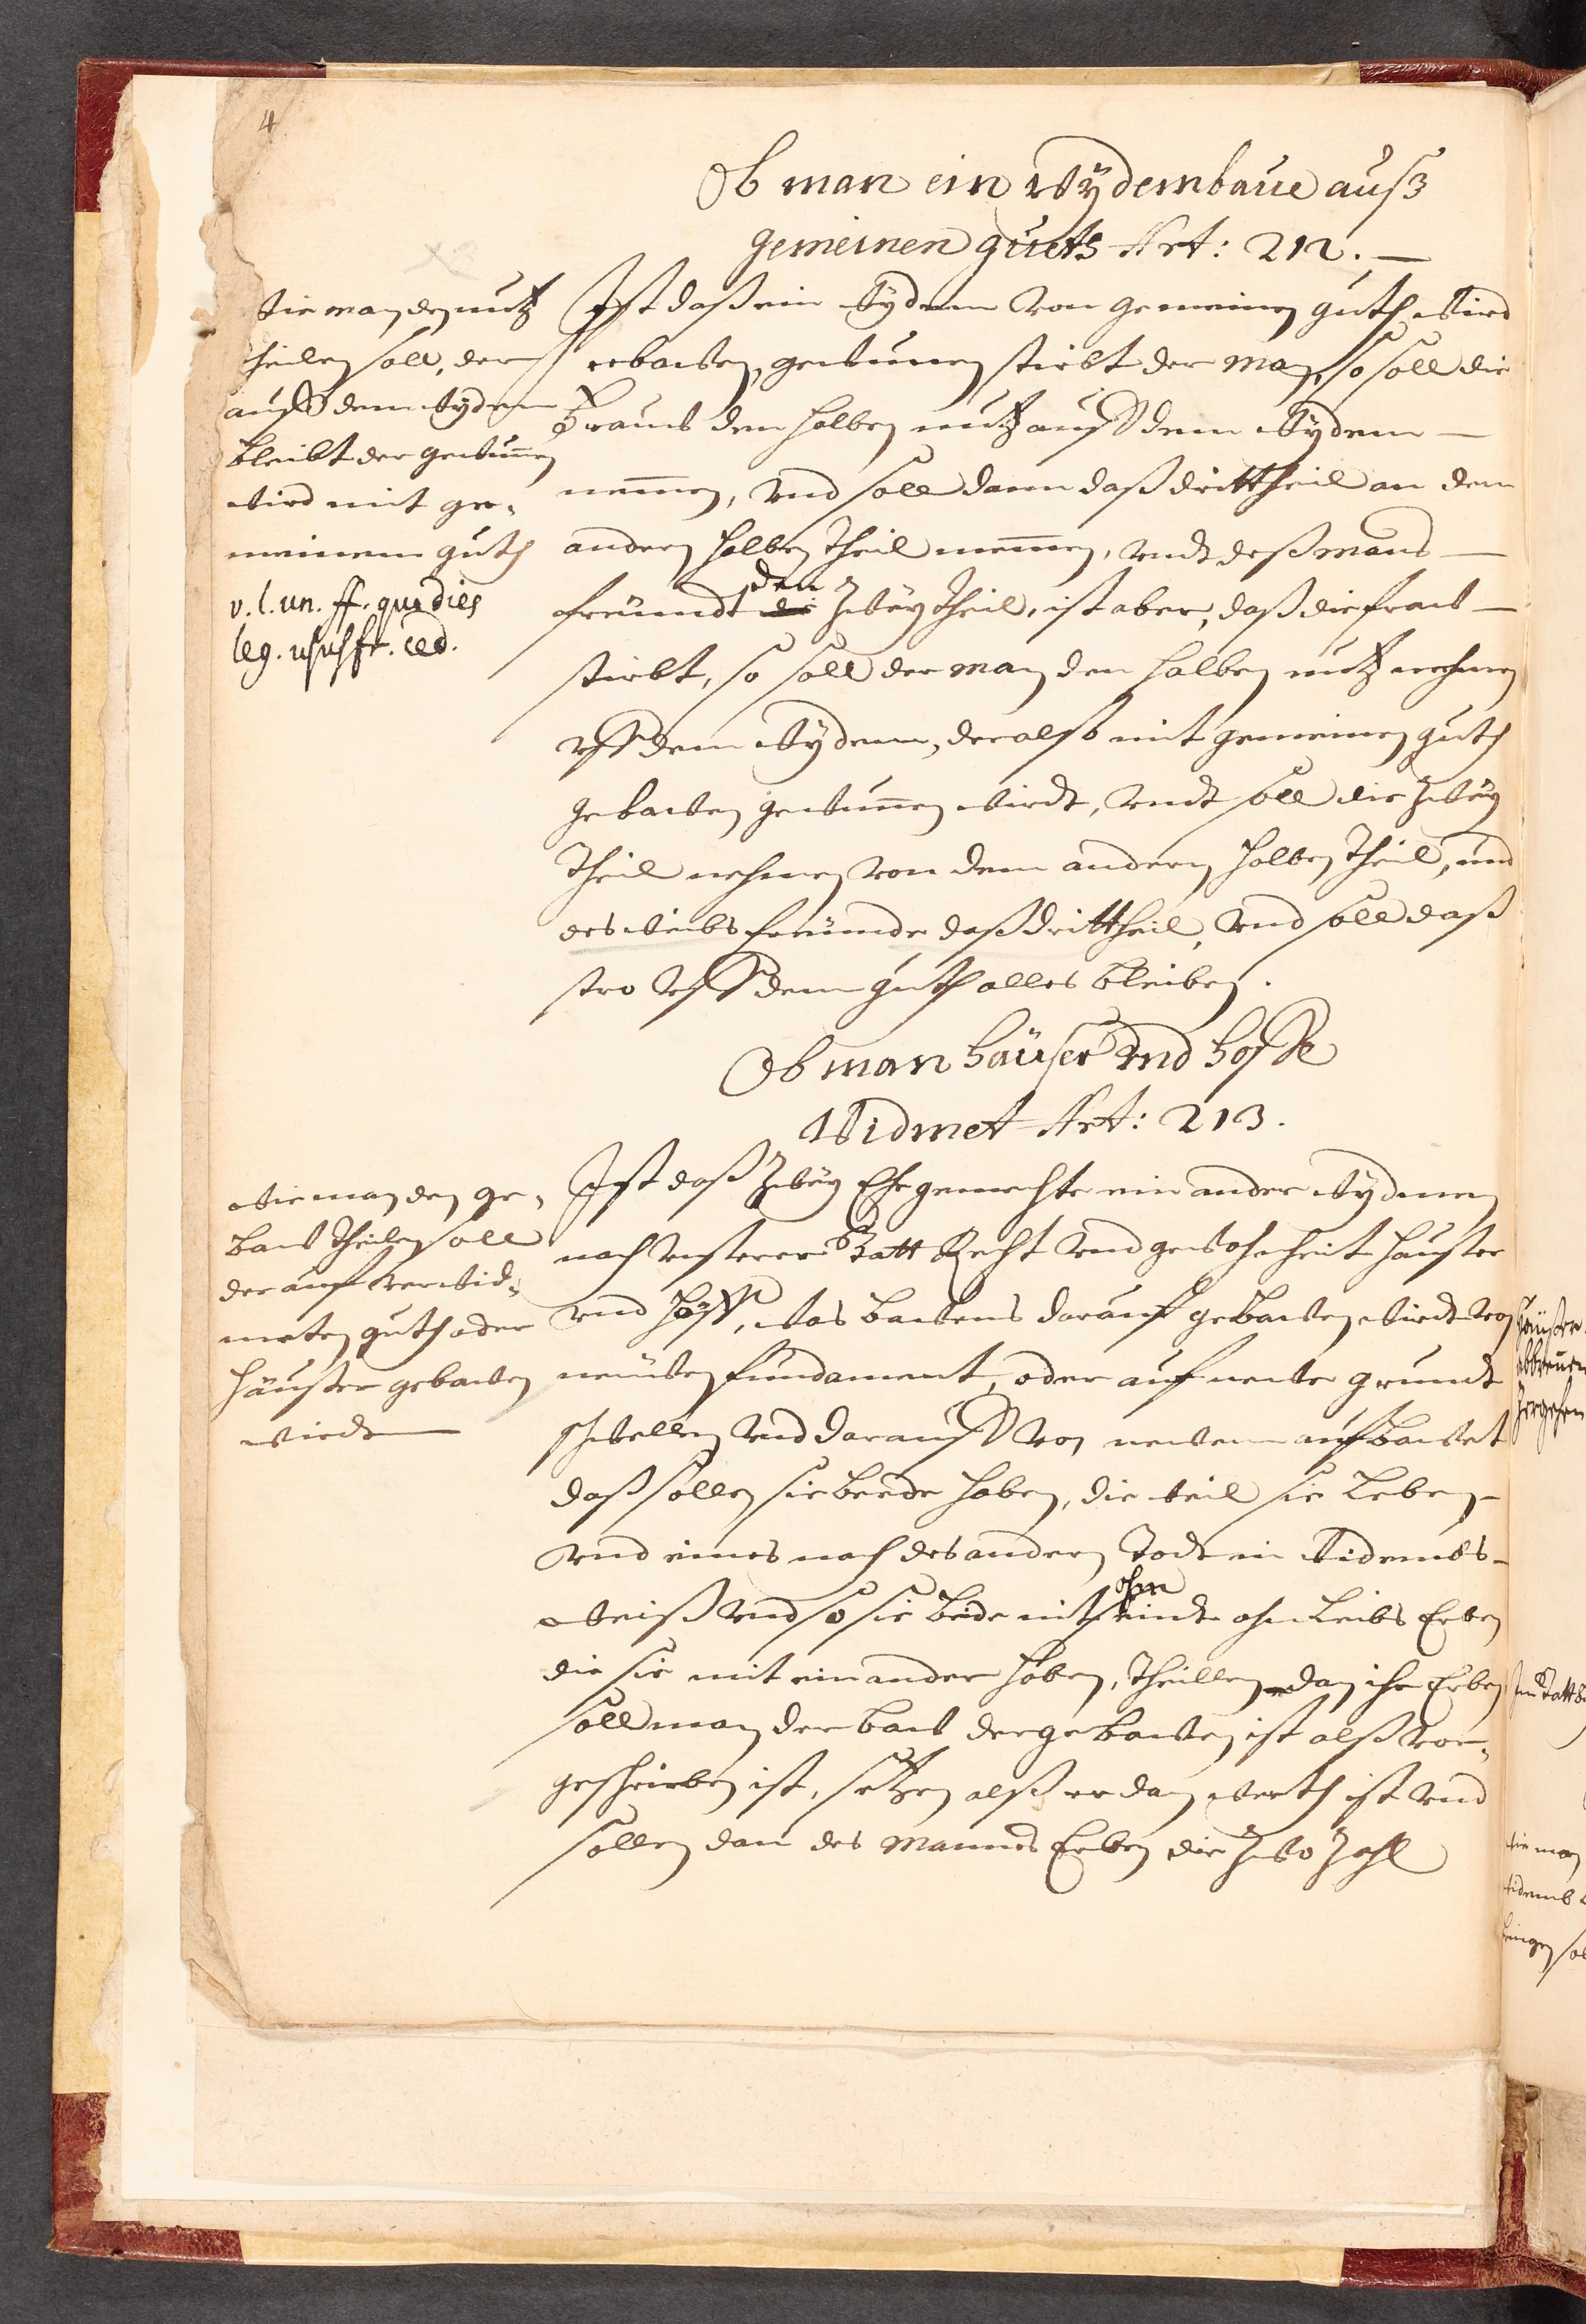 4
Ob man ein Wÿdembaue auß
gemeinen guets Art: 212.
Wie man den nutz
theilen soll, der
auß dem Wydem
bleibt der gewunnen
wird mit ge-
meinem guth
v. l. un. ff. quo dies
leg. ususfr. ced.
Ist daß ein Wydem von gemeinen guth Wird
erbawen, gewunnen stirbt der Man, so soll die
Frauw den halben nutz auß dem Wydem
nemmen, Vnd soll dann daß dritttheil an dem
andern halben theil nemmen, vndt deß mans
freündt den Zwey theil, ist aber, daß die fraw
stirbt, so soll der man den halben nutz nehmen
vff dem Wydem, der also mit gemeinen guth
gebawen gewunnen wirdt, Vndt soll die Zwey
theil nehmen von dem andern halben theil, und
des weibs freünde daß dritttheil, Vnd soll daß
stro Vff dem guth alles bleiben.
Ob man häuser Vnd hoffe
Widmet Art: 213.
Wie man den ge-
baw theilen soll
der auf verwid-
meten guth oder
häußer gebawen
wirdt
Ist daß Zwey Ehegemechte ein ander Wydmen
nach Vnserer Statt Recht Vnd gewohnheit häußer
Vnd höff, was bawens darauf gebawen wirdt von
neüwen fundament, oder auf newe grundt
schwellen Vnd darauß von newem aufbawet
daß sollen sie beede haben, die weil sie Leben
Vnd eines nach des andern Todt in Widembs
weiß Vnd so sie beide mit ohn kindt ohn Leibs Erben
die sie mit einander haben, theillen dan ihr Erben
soll man der baw der gebawen ist alß vor-
geschrieben ist, setzen alß er dan werth ist Vnd
sollen dan des Mannes Erben die Zwo Zahl